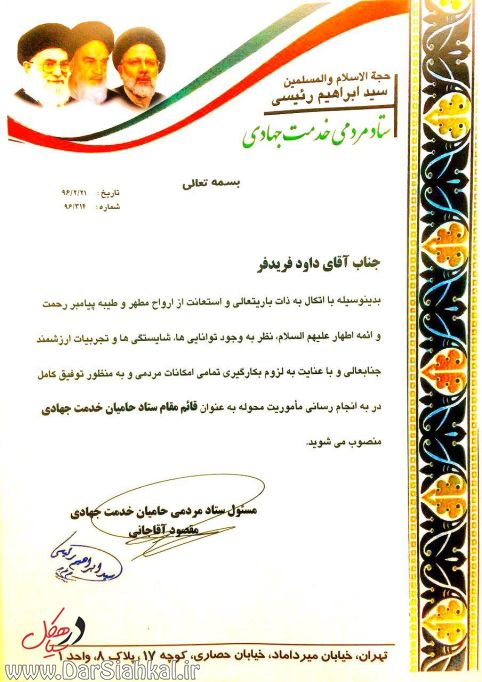 حجة الاسلام والمسلمین
سید ابراهیم رئیسی
ستاد مردمی خدمت جهادی
بسمه تعالی
تاریخ: ۹۶/۲/۲۱
شماره: ۹۶/۳۱۴
جناب آقای داود فریدفر
بدینوسیله با اتکال به ذات باریتعالی و استعانت از ارواح مطهر و طیبه پیامبر رحمت
و ائمه اطهار علیهم السلام، نظر به وجود توانایی ها، شایستگی ها و تجربیات ارزشمند
جنابعالی و با عنایت به لزوم بکارگیری تمامی امکانات مردمی و به منظور توفیق کامل
در به انجام رسانی مأموریت محوله به عنوان قائم مقام ستاد حامیان خدمت جهادی
منصوب می شوید.
مسئول ستاد مردمی حامیان خدمت جهادی
مقصود آقاجانی
سید ابراهیم رئیسی
در سیاهکل
تهران، خیابان میرداماد، خیابان حصاری، کوچه ۱۷، پلاک ۸، واحد ۱
www.DarSiahkal.ir